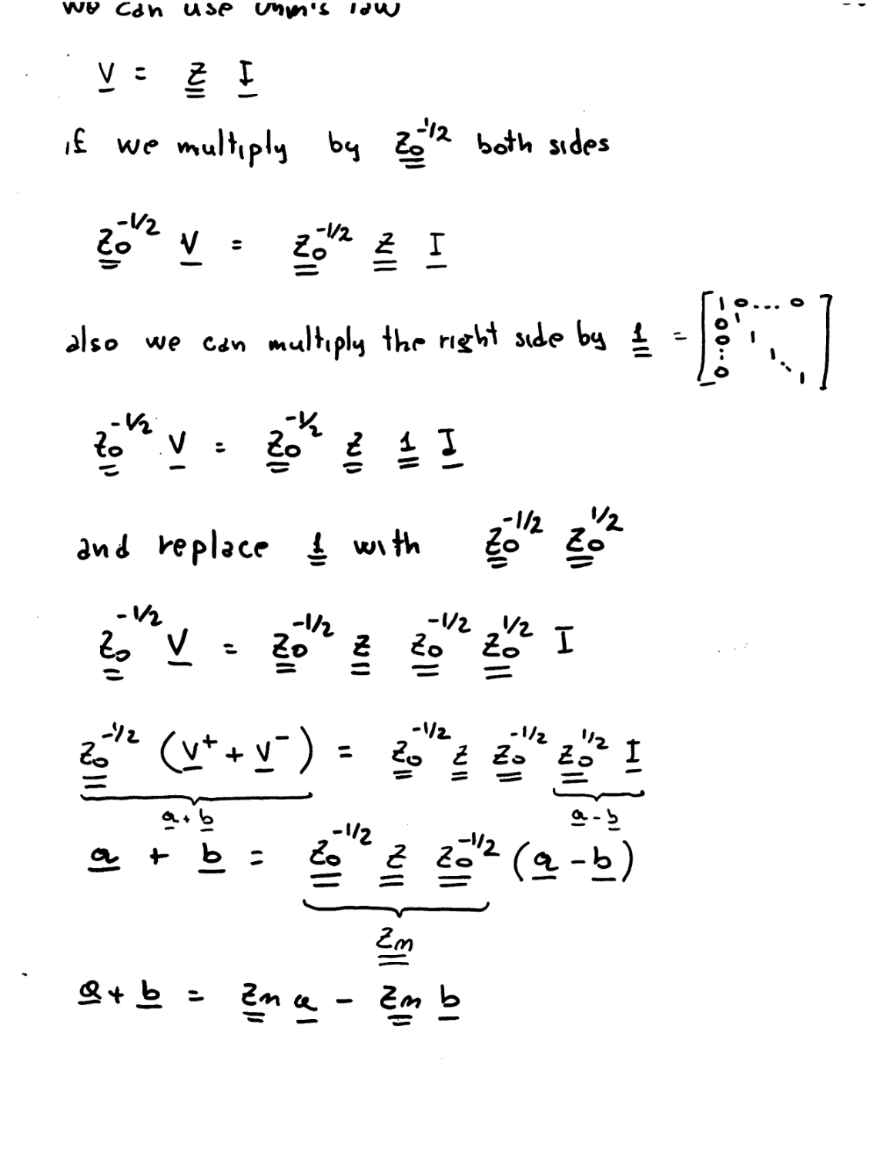 we can use Ohm's law
V = Z I
if we multiply by Z0^-1/2 both sides
Z0^-1/2 V = Z0^-1/2 Z I
also we can multiply the right side by 1 = [1 0 ... 0
0 1
0 1
⋮ 1 ⋱
0 1]
Z0^-1/2 V = Z0^-1/2 Z 1 I
and replace 1 with Z0^-1/2 Z0^1/2
Z0^-1/2 V = Z0^-1/2 Z Z0^-1/2 Z0^1/2 I
Z0^-1/2 (V+ + V-) = Z0^-1/2 Z Z0^-1/2 Z0^1/2 I
a + b a - b
a + b = Z0^-1/2 Z Z0^-1/2 (a - b)
Zm
a + b = Zm a - Zm b